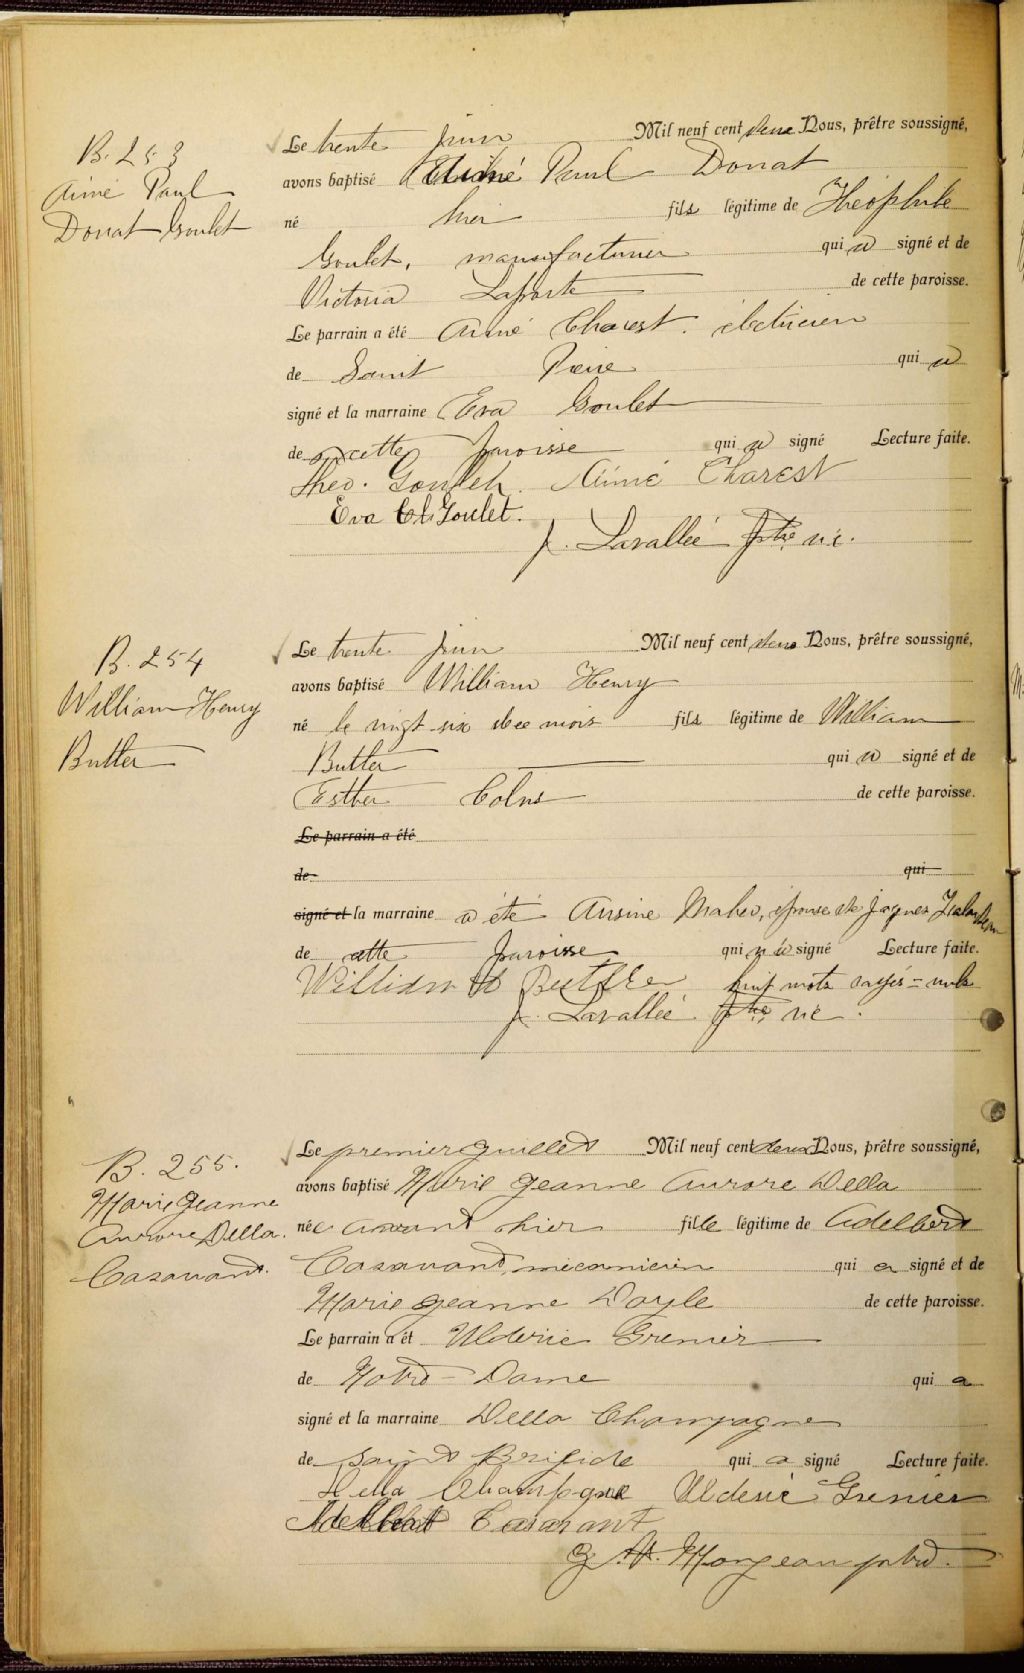 B. 253
Aimé Paul
Donat Goulet
Le trente juin Mil neuf cent deux Nous, prêtre soussigné,
avons baptisé Aimé Paul Donat
né hier fils légitime de Théophile
Goulet, manufacturier qui a signé et de
Victoria Laporte de cette paroisse.
Le parrain a été Aimé Charest. électricien
de Saint Pierre qui a
signé et la marraine Eva Goulet
de cette paroisse qui a signé Lecture faite.
Theo. Goulet. Aimé Charest
Eva Goulet.
J. Lavallée ptre vic.
B. 254
William Henry
Butler
Le trente juin Mil neuf cent deux Nous, prêtre soussigné,
avons baptisé William Henry
né le vingt-six de ce mois fils légitime de William
Butler qui a signé et de
Esther de cette paroisse.
Le parrain a été
de qui
signé et la marraine a été Maheu, épouse de Jacques
de cette paroisse qui n'a signé Lecture faite.
William H Butler huit mots rayés = nuls
J. Lavallée. ptre vic.
B. 255.
Marie Jeanne
Aurore Della.
Casavant.
Le premier Juillet Mil neuf cent deux Nous, prêtre soussigné,
avons baptisé Marie Jeanne Aurore Della
née avant hier fille légitime de Adelbert
Casavant, mécanicien qui a signé et de
Marie Jeanne Doyle de cette paroisse.
Le parrain a ét Ulderic Grenier
de Notre-Dame qui a
signé et la marraine Della Champagne
de Saint Brigide qui a signé Lecture faite.
Della Champagne Uldéric Grenier
Adelbert Casavant
Mongeau ptre.